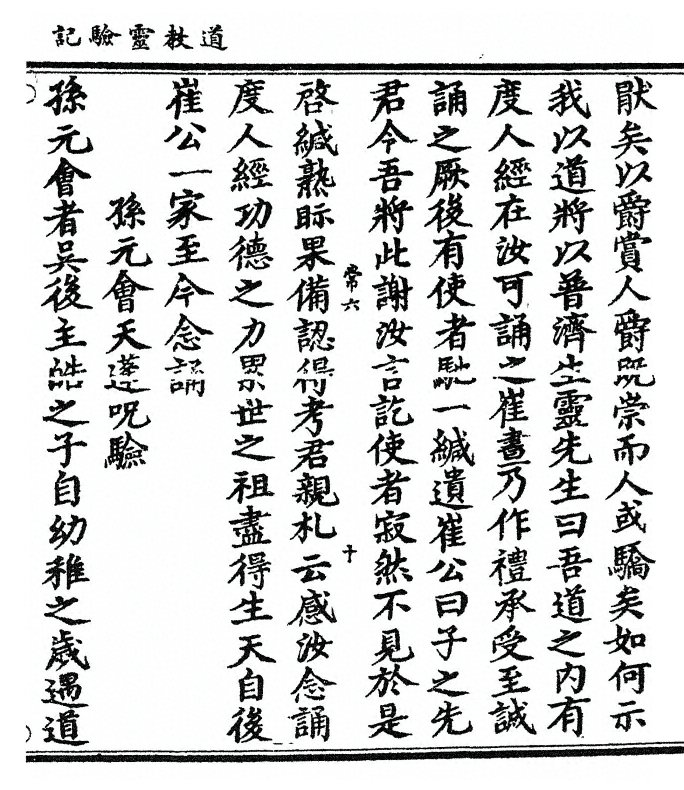 道教靈驗記
猒矣以爵賞人爵旣崇而人或驕矣如何示
我以道將以普濟生靈先生曰吾道之內有
度人經在汝可誦之崔晝乃作禮承受至誠
誦之厥後有使者馳一緘遺崔公曰子之先
君今吾將此謝汝言訖使者寂然不見於是
常六
十
啓緘熟眎果備認得考君親札云感汝念誦
度人經功德之力累世之祖盡得生天自後
崔公一家至今念誦
孫元會天蓬呪驗
孫元會者吳後主皓之子自幼稚之歲遇道